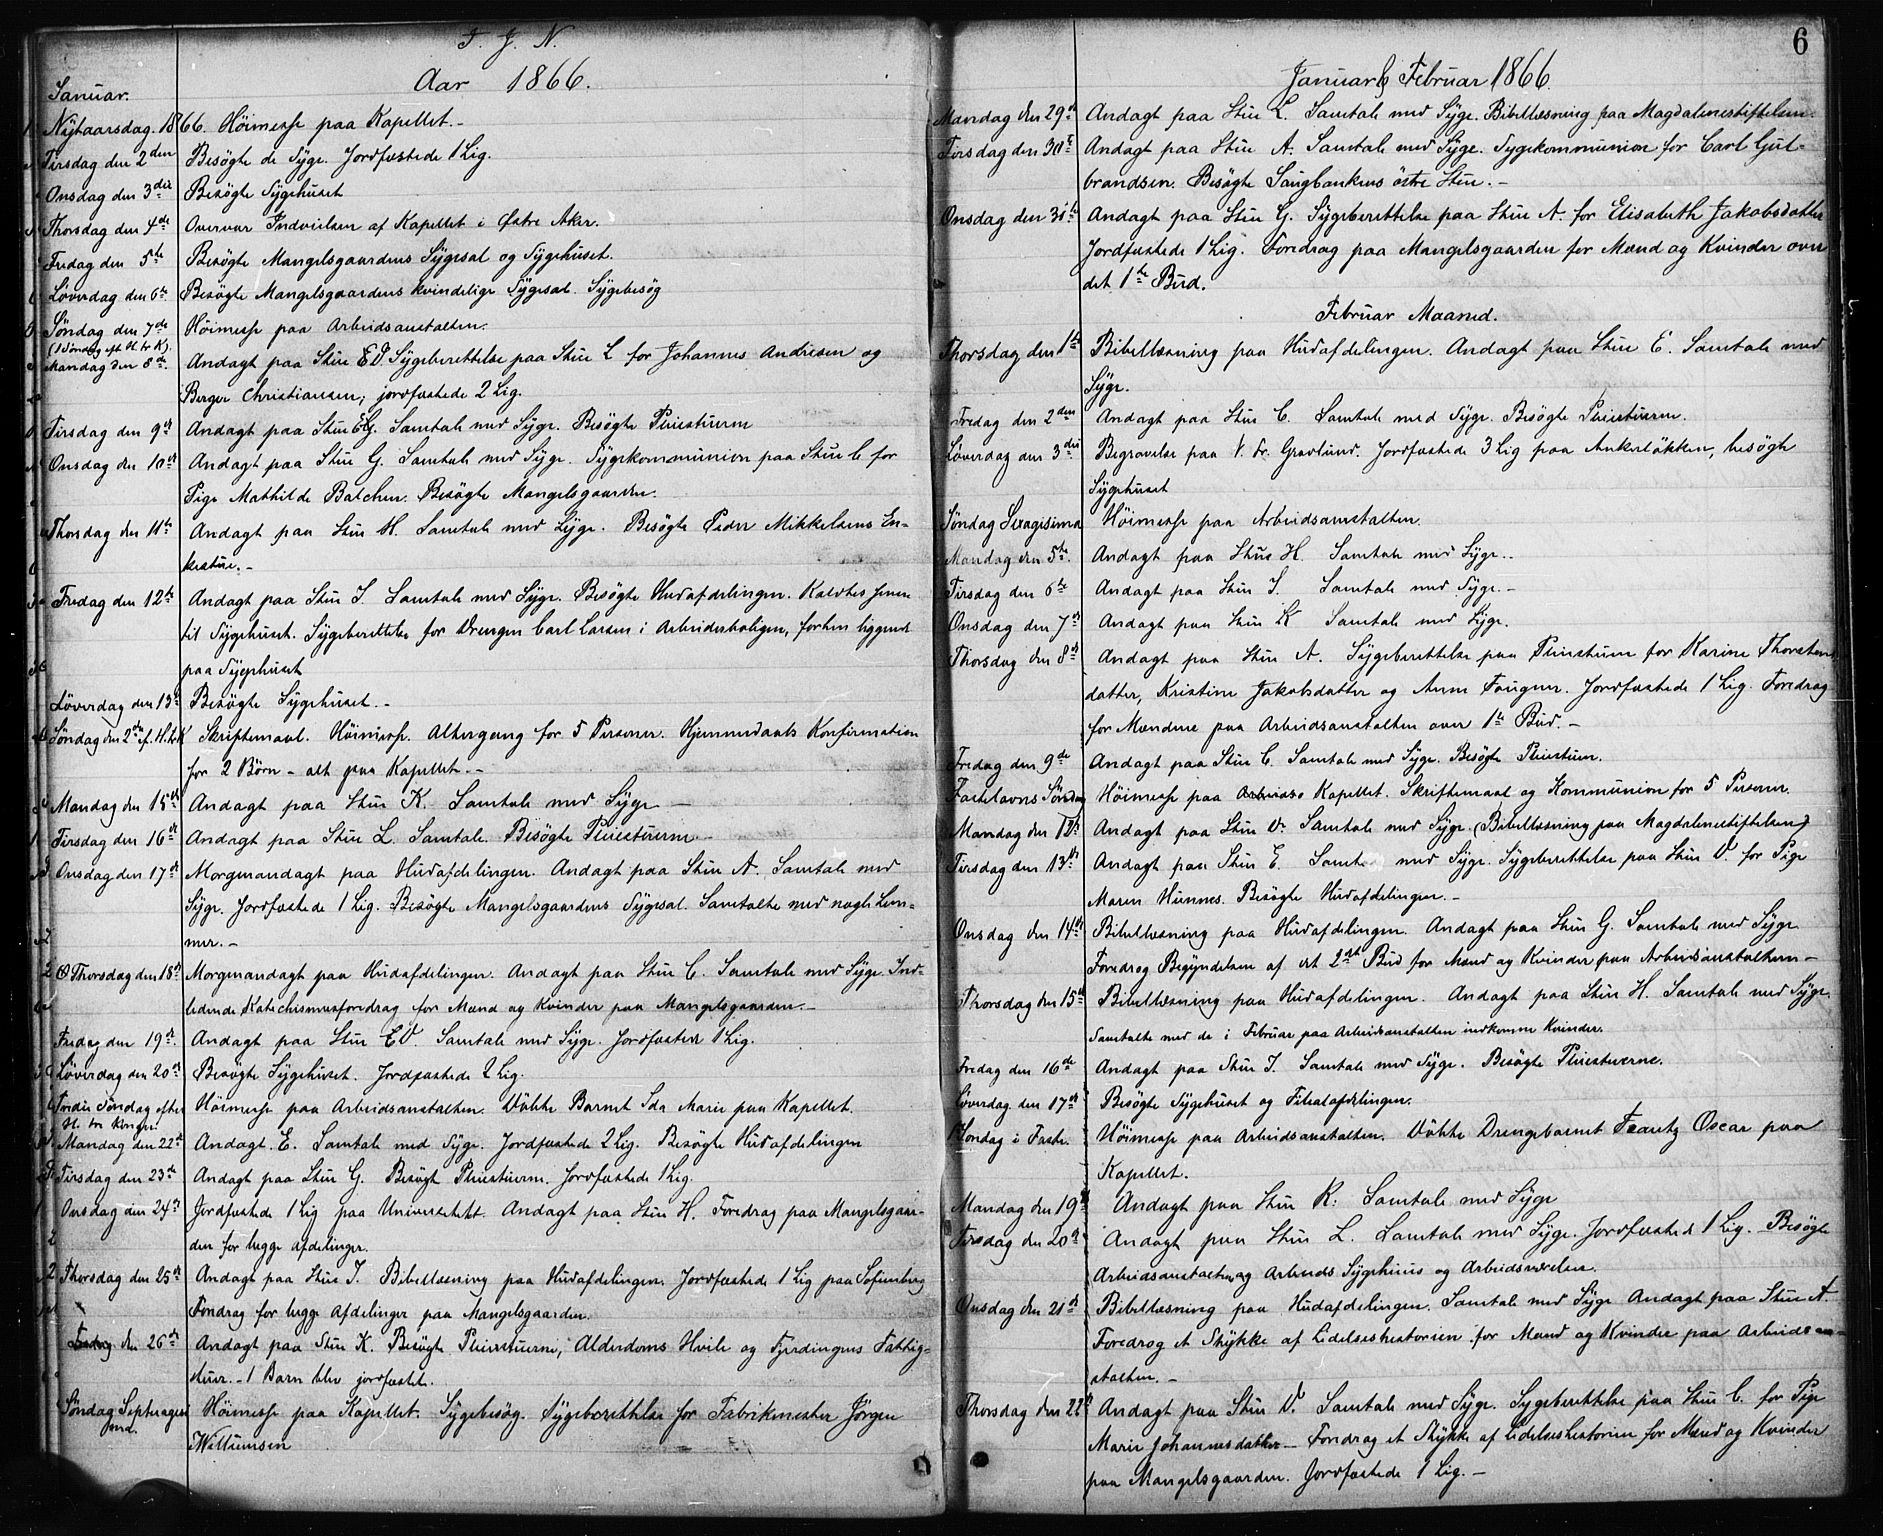 I. J. N.
Aar 1866.
Januar.
Nytaarsdag 1866. Høimesse paa Kapellet.-
Tirsdag den 2den Besøgte de Syge. Jordfæstede 1 Lig.
Onsdag den 3die Besøgte Sygehuset
Thorsdag den 4de Overvar Indvielsen af Kapellet i Østre Aker.
Fredag den 5te Besøgte Mangelsgaardens Sygesal og Sygehuset.
Løverdag den 6te Besøgte Mangelsgaardens kvindelige Sygesal. Sygebesøg
Søndag den 7de Høimesse paa Arbeidsanstalten.
(1 Søndag eft H. tr K).
Mandag den 8de. Andagt paa Stue D. Sygeberettelse paa Stue L for Johannes Andresen og
Berger Christiansen; jordfæstede 2 Lig.
Tirsdag den 9de Andagt paa Stue G. Samtale med Syge. Besøgte Pleiestuerne
Onsdag den 10de Andagt paa Stue G. Samtale med Syge. Sygekommunion paa Stue C for
Pige Mathilde Batchen. Besøgte Mangelsgaarden.
Thorsdag den 11te Andagt paa Stue H. Samtale med Syge. Besøgte Peder Mikkelsens En-
kestue.-
Fredag den 12te Andagt paa Stue I Samtale med Syge. Besøgte Hudafdelingen. Kaldtes
til Sygehuset. Sygeberettelse for Drengen Carl Larsen i Arbeiderboligen, forhen liggende
paa Sygehuset
Løverdag den 13de Besøgte Sygehuset.-
Søndag den 2den ef. H.t.K Skriftemaal. Høimesse. Altergang for 5 Personer. Hjemmedaabs Konfirmation
for 2 Børn - alt paa Kapellet.-
Mandag den 15de Andagt paa Stue K. Samtale med Syge -
Tirsdag den 16de Andagt paa Stue L. Samtale. Besøgte Pleiestuerne -
Onsdag den 17de Morgenandagt paa Hudafdelingen. Andagt paa Stue A. Samtale med
Syge. Jordfæstede 1 Lig. Besøgte Mangelsgaardens Sygesal. Samtalte med nogle Lem-
mer.-
Thorsdag den 18de Morgenandagt paa Hudafdelingen. Andagt paa Stue C. Samtale med Syge. Ind-
ledende Katechismusforedrag for Mænd og Kvinder paa Mangelsgaarden.-
Fredag den 19de Andagt paa Stue D. Samtale med Syge. Jordfæstede 1 Lig.
Løverdag den 20de Besøgte Sygehuset. Jordfæstede 2 Lig.
Tredie Søndag efter Høimesse paa Arbeidsanstalten. Døbte Barnet Ida Marie paa Kapellet.
H. tre Konger
Mandag den 22de Andagt. E. Samtale med Syge. Jordfæstede 2 Lig. Besøgte Hudafdelingen
Tirsdag den 23de Andagt paa Stue G. Besøgt Pleiestuerne. Jordfæstede 1 Lig.
Onsdag den 24de Jordfæstede 1 Lig paa Universitetet. Andagt paa Stue H. Foredrag paa Mangelsgaar-
den for begge Afdelinger.
Thorsdag den 25de Andagt paa Stue I. Bibellæsning paa Hudafdelingen. Jordfæstede 1 Lig paa Sofienberg
Foredrag for begge Afdelinger paa Mangelsgaarden.
Fredag den 26de Andagt paa Stue K. Besøgte Pleiestuerne, Alderdoms Hvile og Fjerdingens Fattig-
stuer.- 1 Barn blev jordfæstet.
Søndag Septuagesi Høimesse paa Kapellet. Sygebesøg. Sygeberettelse for Fabrikmester Jørgen
Willumsen
6
Januar & Februar 1866.
Mandag den 29de Andagt paa Stue L. Samtale med Syge. Bibellæsning paa Magdalenestiftelsen.
Tirsdag den 30te Andagt paa Stue A. Samtale med Syge. Sygekommunion for Carl Gul-
brandsen. Besøgte Saugbankens østre Stue.-
Onsdag den 31te Andagt paa Stue G. Sygeberettelse paa Stue A. for Elisabeth Jakobsdatter
Jordfæstede 1 Lig. Foredrag paa Mangelsgaarden for Mænd og Kvinder over
det 1ste Bud.
Februar Maaned.
Thorsdag den 1ste Bibellæsning paa Hudafdelingen. Andagt paa Stue E. Samtale med
Syge.
Fredag den 2den Andagt paa Stue C. Samtale med Syge. Besøgte Pleiestuerne.
Løverdag den 3die Begravelse paa V. Fr. Gravlund. Jordfæstede 3 Lig paa Ankerløkken, besøgte
Sygehuset
Søndag Sexagisima Høimesse paa Arbeidsanstalten.
Mandag den 5te. Andagt paa Stue H. Samtale med Syge.-
Tirsdag den 6te Andagt paa Stue I. Samtale med Syge.-
Onsdag den 7de Andagt paa Stue K Samtale med Syge.
Thorsdag den 8de Andagt paa Stue A. Sygeberettelse paa Pleiestuen for Karine Thorstens-
datter, Kristine Jakobsdatter og Anne Fougner. Jordfæstede 1 Lig. Foredrag
for Mændene paa Arbeidsanstalten over 1ste Bud.-
Fredag den 9de Andagt paa Stue C. Samtale med Syge. Besøgte Pleiestuen.
Fastelavns Søndag Høimesse paa Kapellet. Skriftemaal og Kommunion for 5 Personer.
Mandag den 12te Andagt paa Stue D. Samtale med Syge (Bibellæsning paa Magdalenestiftelsen)
Tirsdag den 13de Andagt paa Stue E. Samtale med Syge. Sygeberettelse paa Stue D. for Pige
Maren Hunnes. Besøgte Hudafdelingen.-
Onsdag den 14de Bibellæsning paa Hudafdelingen. Andagt paa Stue G. Samtale med Syge
Foredrog Begyndelsen af det 2det Bud for Mænd og Kvinder paa Arbeidsanstalten -
Thorsdag den 15de Bibellæsning paa Hudafdelingen. Andagt paa Stue H. Samtale med Syge.
Samtalte med de i Februar paa Arbeidsanstalten indkomne Kvinder.
Fredag den 16de Andagt paa Stue I. Samtale med Syge. Besøgte Pleiestuerne.
Løverdag den 17de Besøgte Sygehuset og Filialafdelingen.
1 Søndag i Faste. Høimesse paa Arbeidsanstalten. Døbte Drengebarnet Frantz Oscar paa
Kapellet.
Mandag den 19de Andagt paa Stue K. Samtale med Syge
Tirsdag den 20de Andagt paa Stue L. Samtale med Syge. Jordfæstede 1 Lig. Besøgte
Arbeidsanstalten og Arbeids Sygehuus og Arbeidsværelser.
Onsdag den 21de Bibellæsning paa Hudafdelingen. Samtale med Syge Andagt paa Stue A.
Foredrog et Stykke af Lidelseshistorien for Mænd og Kvinder paa Arbeidsan-
stalten.-
Thorsdag den 22de Andagt paa Stue D. Samtale med Syge. Sygeberettelse paa Stue C. for Pige
Marie Johannesdatter - Foredrag et Stykke af Lidelseshistorien for Mænd og Kvinder
paa Mangelsgaarden. Jordfæstede 1 Lig.-